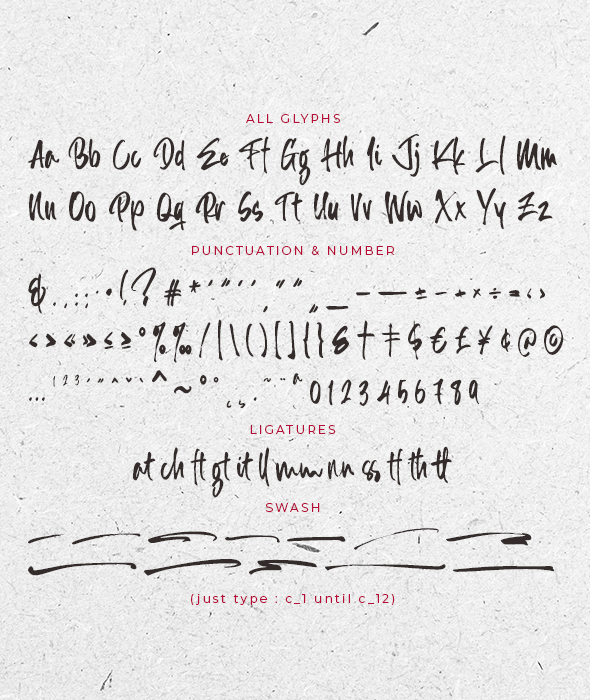 ALL GLYPHS
Aa Bb Cc Dd Ee Ff Gg Hh Ii Jj Kk Ll Mm
Nn Oo Pp Qq Rr Ss Tt Uu Vv Ww Xx Yy Zz
PUNCTUATION & NUMBER
& . , : ; · • ! ? # * ' " ' ' , " " „ _ – — ± − + × ÷ = ‹ ›
< > « » ≤ ≥ ° % ‰ / | \ ( ) [ ] { } § † ‡ $ € £ ¥ ¢ @ ©
0 1 2 3 4 5 6 7 8 9
LIGATURES
at ch ft gt it ll mm nn ss tt th tt
SWASH
(just type : c_1 until c_12)